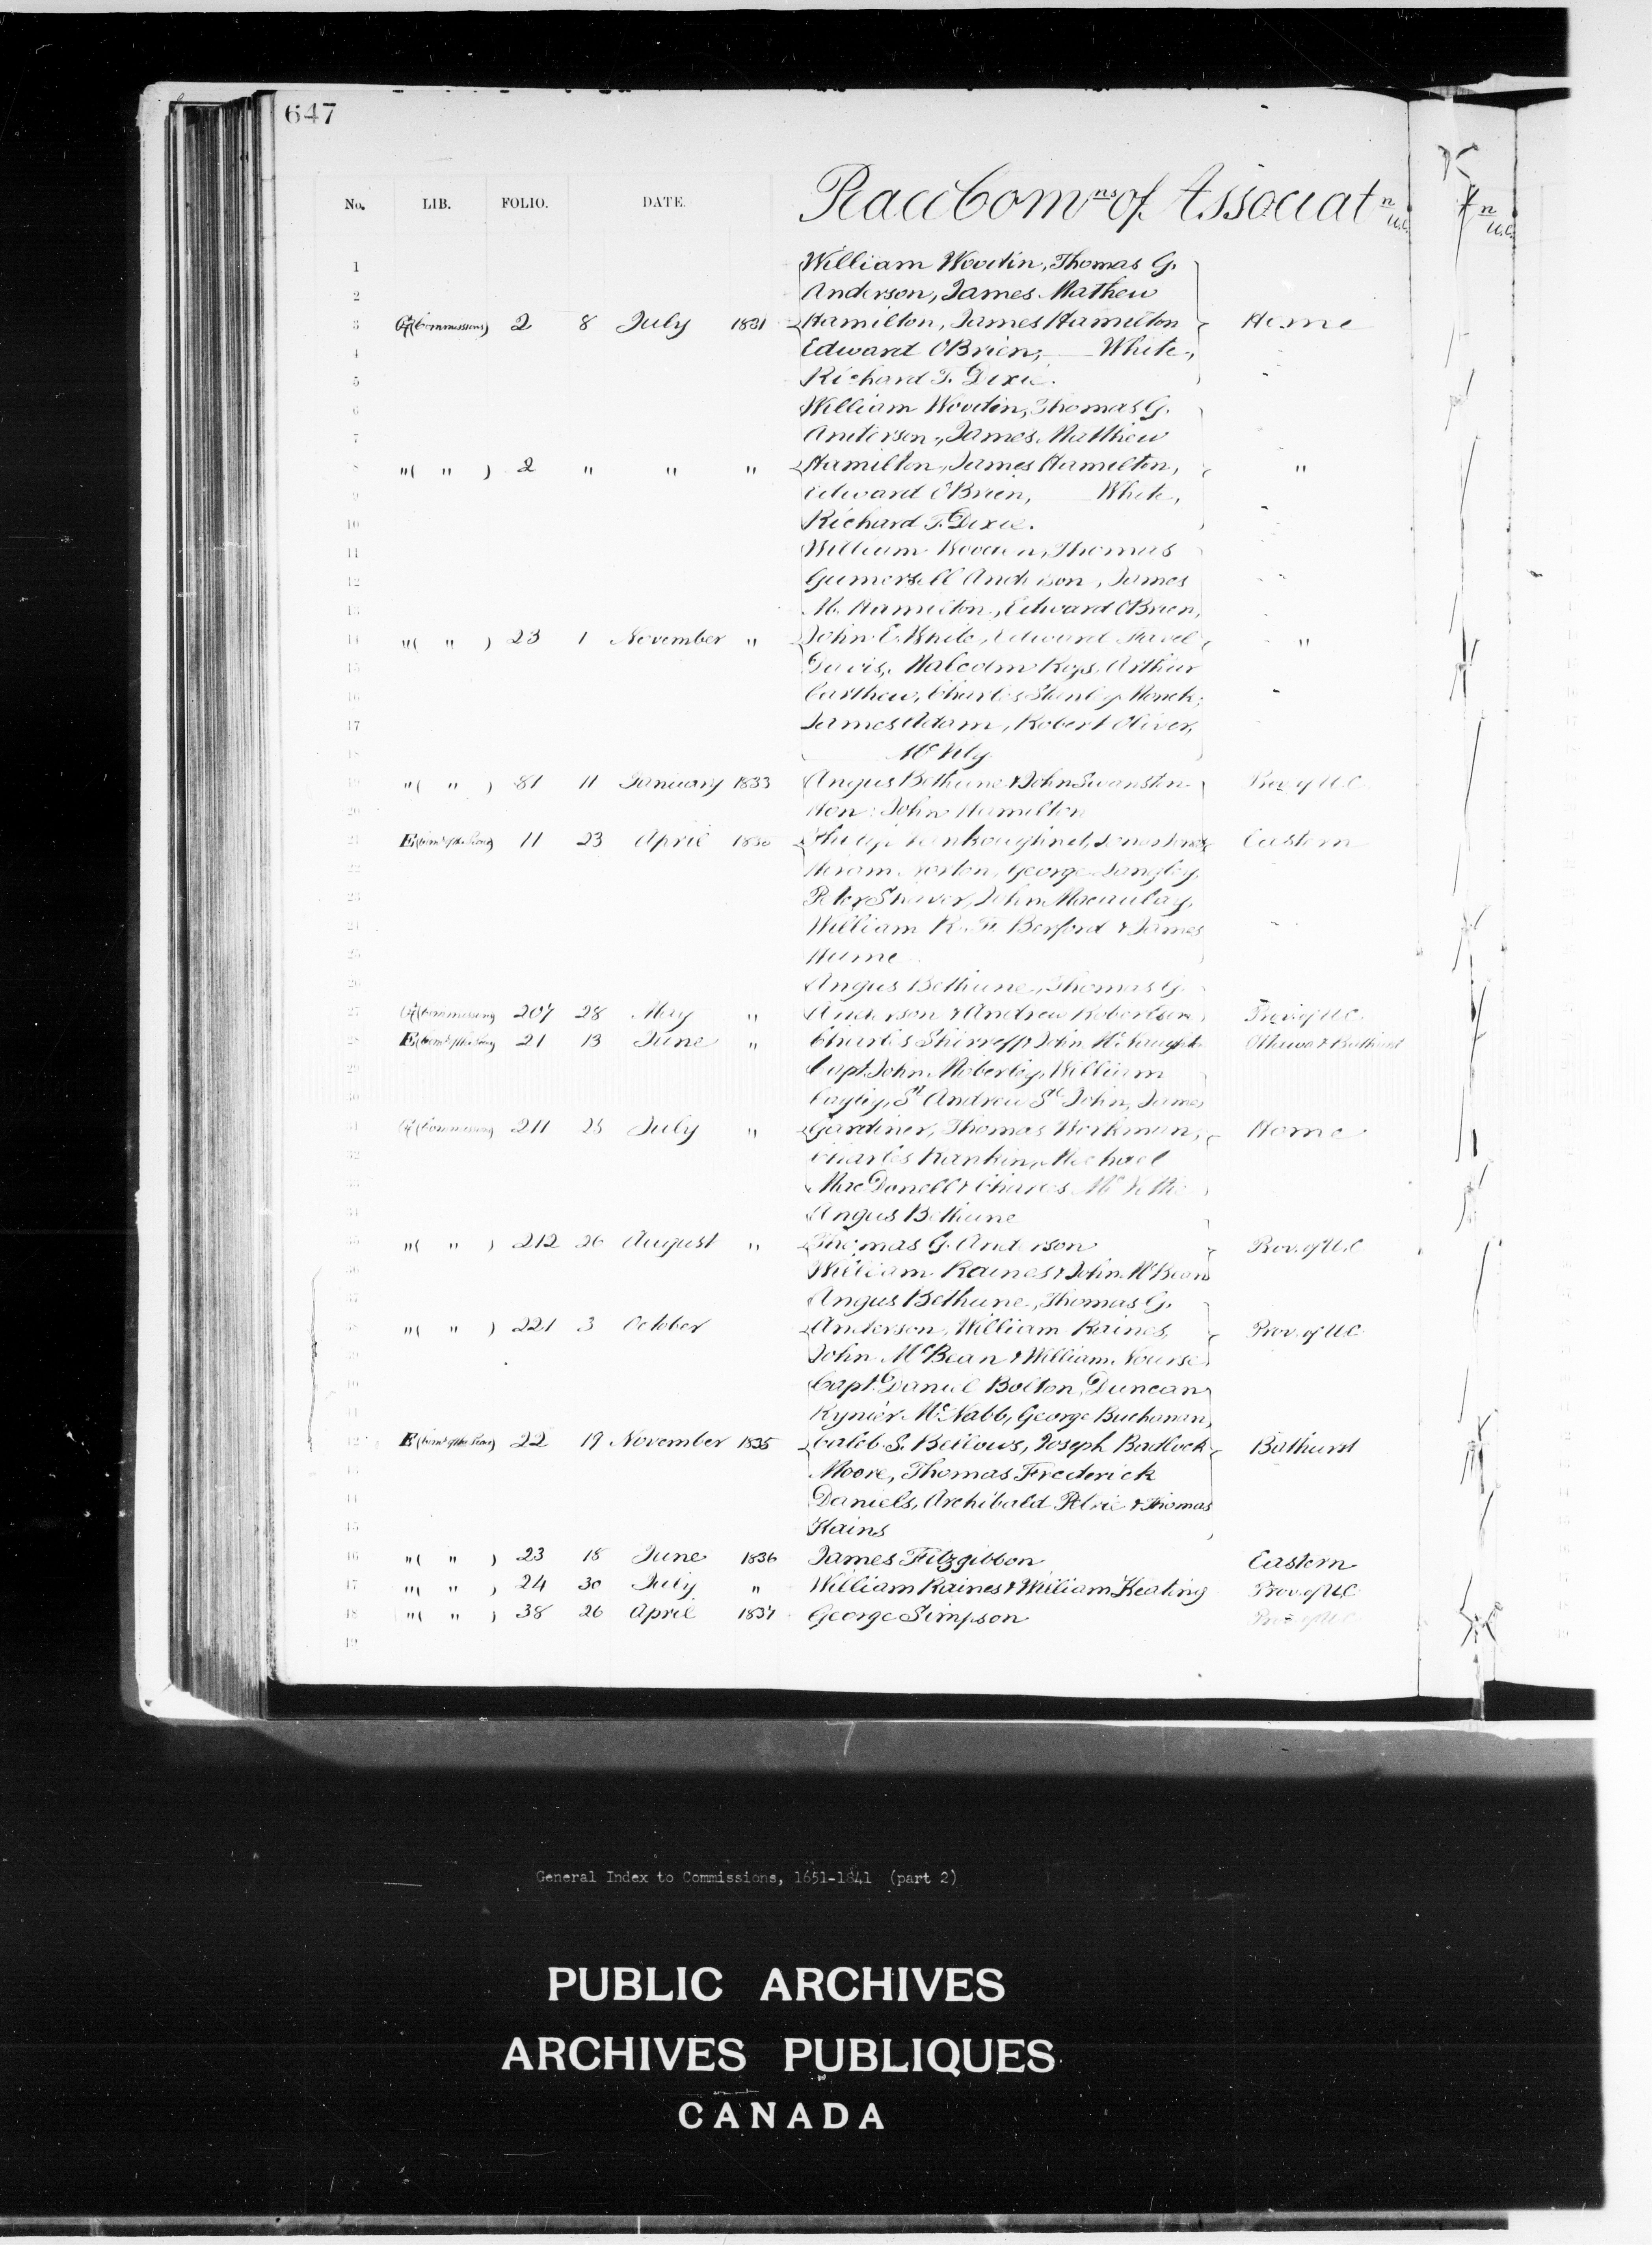 647
No. LIB. FOLIO. DATE. Peace Comns of Associatn U.C.
n U.C.
1 William Woodin, Thomas G.
2 Anderson, James Mathew
3 (Commissions) 2 8 July 1831 Hamilton, James Hamilton Home
4 Edward O'Brien, White,
5 Richard T. Dixie.
6 William Woodin, Thomas G.
7 Anderson, James Matthew
8 "( " ) 2 " " " Hamilton, James Hamilton, "
9 Edward O'Brien, White,
10 Richard T. Dixie.
11 William Woodin, Thomas
12 Gumersell Anderson, James
13 M. Hamilton, Edward O'Brien,
14 "( " ) 23 1 November " John E. White, Edward "
15 Davis, Malcolm Ross, Arthur
16 Carthew, Charles Stanley Monck,
17 James Adam, Robert Oliver,
18
19 "( " ) 81 11 January 1833 Angus Bethune & John Swanston Prov of U.C.
20 Hon: John Hamilton
21 E (Comns of the Peace) 11 23 April 1835 Philip Vankoughnet, Eastern
22 Hiram Norton, George Langley,
23 Peter Shaver, John Macaulay,
24 William R. F. Berford & James
25 Hume
26 Angus Bethune, Thomas G.
27 (Commissions 207 28 May " Anderson & Andrew Robertson Prov of U.C.
28 E (Comns of the Peace) 21 13 June " Charles Shirreff & John Ottawa & Bathurst
29 Capt. John Moberley, William
30 Cayley, St Andrew St John, James
31 (Commissions 211 25 July " Gardiner, Thomas Workman, Home
32 Charles Rankin, Michael
33 MacDonell & Charles
34 Angus Bethune
35 "( " ) 212 26 August " Thomas G. Anderson Prov. of U.C
36 William Raines & John McBean
37 Angus Bethune, Thomas G.
38 "( " ) 221 3 October Anderson, William Raines, Prov. of U.C.
39 John McBean & William Nourse
40 Capt. Daniel Bolton, Duncan
41 Rynier McNabb, George Buchanan,
42 E (Comns of the Peace) 22 19 November 1835 Caleb S. Bellows, Joseph Badlock Bathurst
43 Moore, Thomas Frederick
44 Daniels, Archibald Petrie & Thomas
45 Hains
46 "( " ) 23 18 June 1836 James Fitzgibbon Eastern
47 "( " ) 24 30 July " William Raines & William Keating Prov. of U.C.
48 "( " ) 38 26 April 1837 George Simpson Prov of U.C.
49
General Index to Commissions, 1651-1841 (part 2)
PUBLIC ARCHIVES
ARCHIVES PUBLIQUES
CANADA